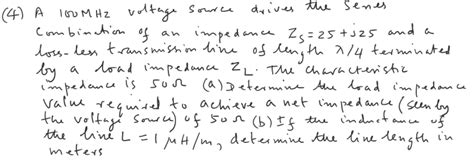 (4) A 100MHz voltage source drives the series
Combination of an impedance Zs=25+j25 and a
loss-less transmission line of length λ/4 terminated
by a load impedance ZL. The characteristic
impedance is 50Ω (a) Determine the load impedance
value required to achieve a net impedance (seen by
the voltage source) of 50Ω (b) If the inductance of
the line L = 1 μH/m, determine the line length in
meters